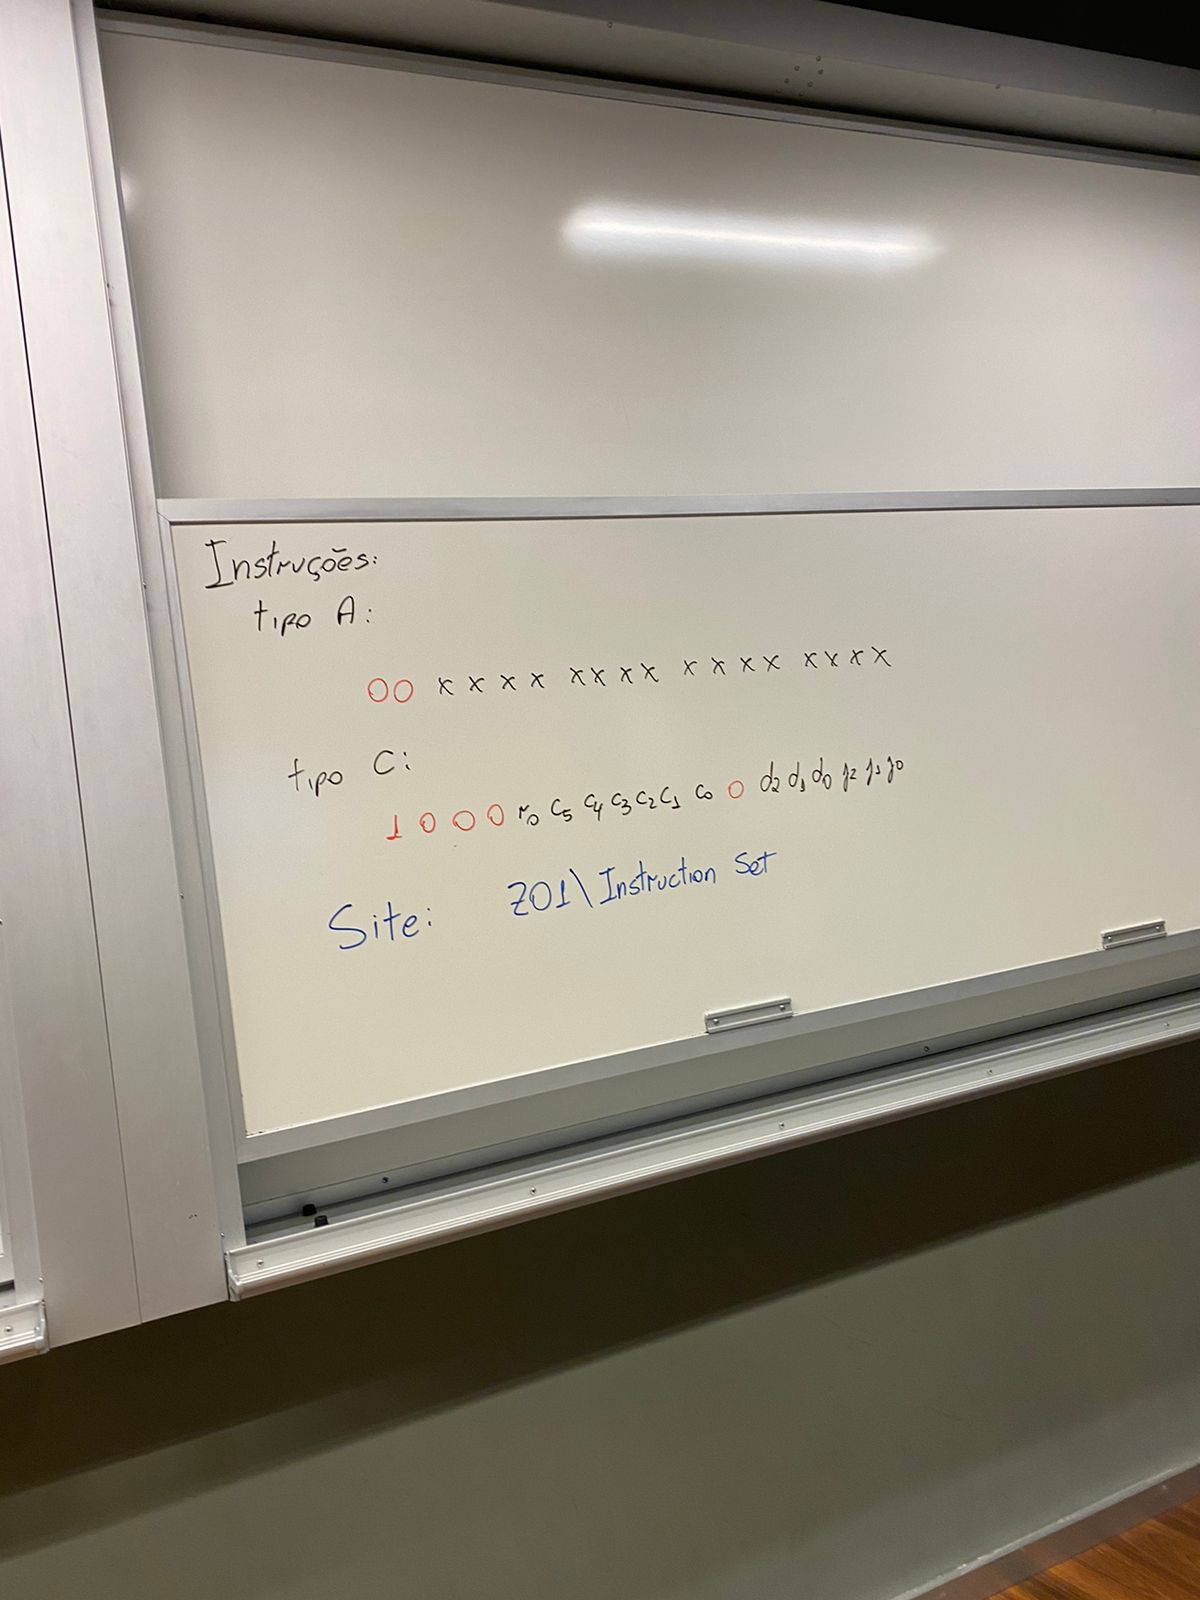 Instruções:
tipo A:
00 xxxx xxxx xxxx xxxx
tipo C:
1 0 0 0 r0 c5 c4 c3 c2 c1 c0 0 d2 d1 d0 j2 j1 j0
Site: Z01\Instruction Set